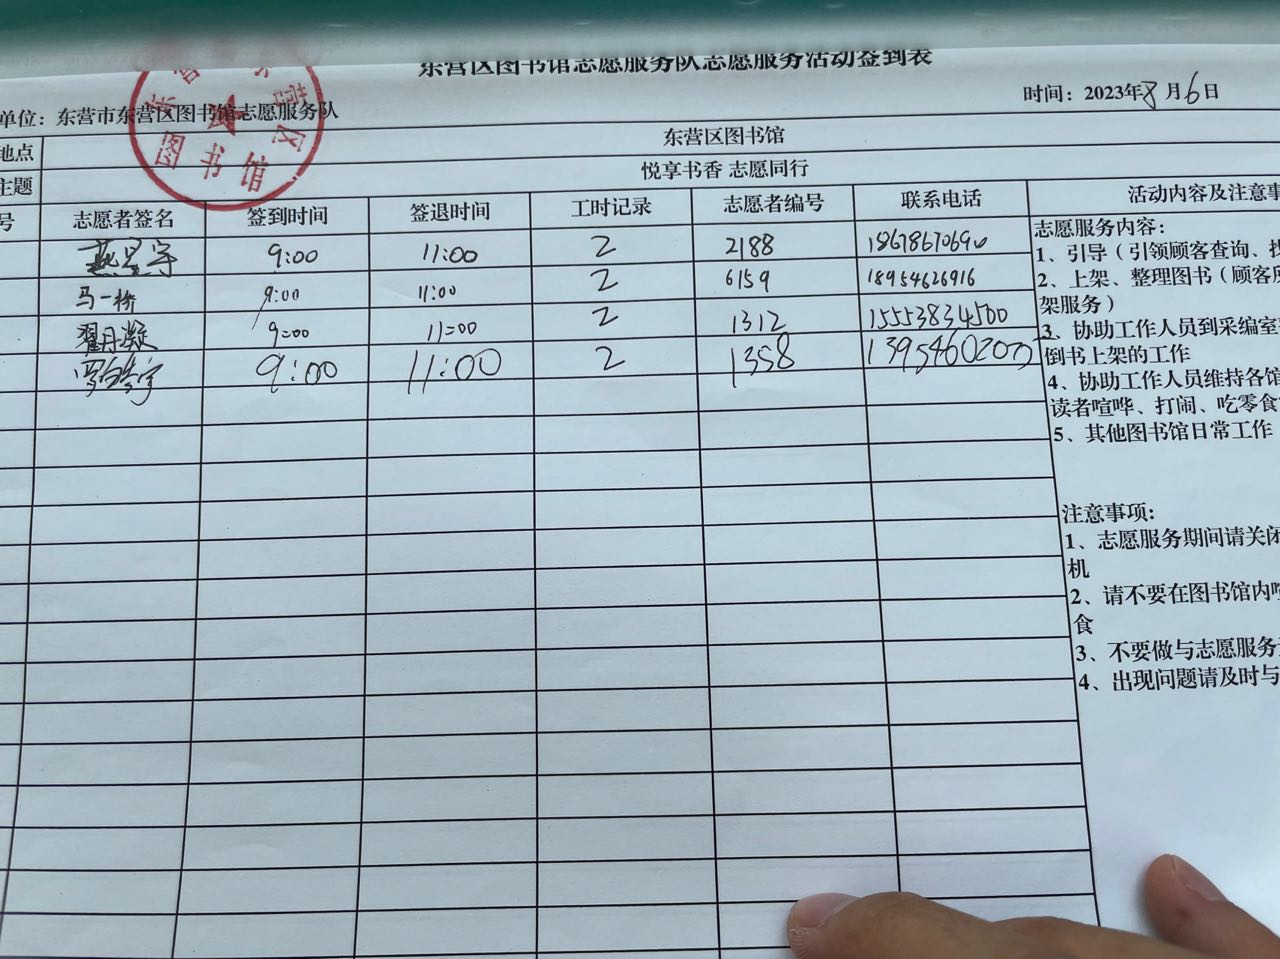 东营区图书馆志愿服务队志愿服务活动签到表
时间：2023年8月6日
单位：东营市东营区图书馆志愿服务队
东营区图书馆
地点 东营区图书馆
主题 悦享书香 志愿同行
号 志愿者签名 签到时间 签退时间 工时记录 志愿者编号 联系电话 活动内容及注意事
9:00 11:00 2 2188
马一桥 9:00 11:00 2 6159 18954626916
翟月凝 9:00 11:00 2 1312 15553834500
9:00 11:00 2 1358
志愿服务内容：
1、引导（引领顾客查询、
2、上架、整理图书（顾客
架服务）
3、协助工作人员到采编室
倒书上架的工作
4、协助工作人员维持各馆
读者喧哗、打闹、吃零食
5、其他图书馆日常工作
注意事项：
1、志愿服务期间请关闭
机
2、请不要在图书馆内喧
食
3、不要做与志愿服务
4、出现问题请及时与